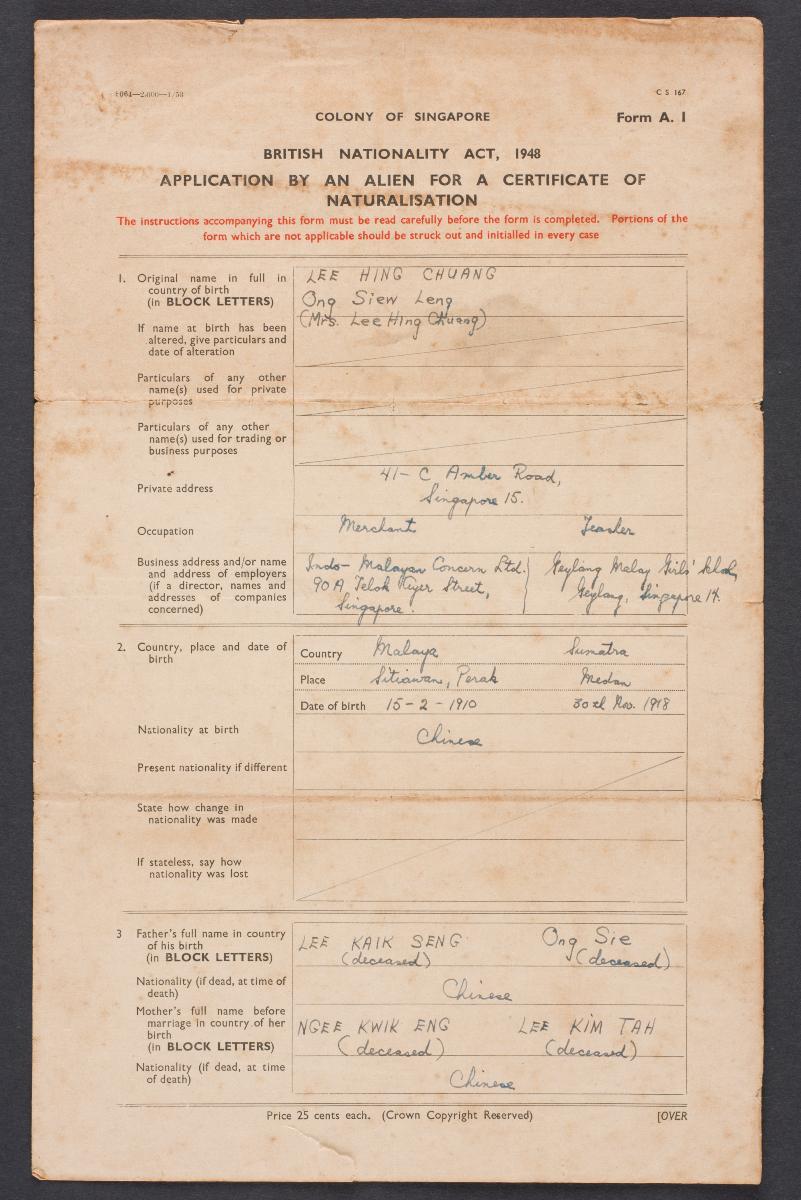 C S 167
COLONY OF SINGAPORE
Form A. 1
BRITISH NATIONALITY ACT, 1948
APPLICATION BY AN ALIEN FOR A CERTIFICATE OF
NATURALISATION
The instructions accompanying this form must be read carefully before the form is completed. Portions of the
form which are not applicable should be struck out and initialled in every case
1. Original name in full in
country of birth
(in BLOCK LETTERS)
LEE HING CHUANG
Ong Siew Leng
(Mrs. Lee Hing Chuang)
If name at birth has been
altered, give particulars and
date of alteration
Particulars of any other
name(s) used for private
purposes
Particulars of any other
name(s) used for trading or
business purposes
Private address
41-C Amber Road,
Singapore 15.
Occupation
Merchant Teacher
Business address and/or name
and address of employers
(if a director, names and
addresses of companies
concerned)
Indo-Malayan Concern Ltd.
90A Telok Ayer Street,
Singapore.
Geylang Malay Girls' School,
Geylang, Singapore 14.
2. Country, place and date of
birth
Country Malaya Sumatra
Place Sitiawan, Perak Medan
Date of birth 15-2-1910 30th Nov. 1918
Nationality at birth
Chinese
Present nationality if different
State how change in
nationality was made
If stateless, say how
nationality was lost
3 Father's full name in country
of his birth
(in BLOCK LETTERS)
LEE KAIK SENG Ong Sie
(deceased) (deceased)
Nationality (if dead, at time of
death)
Chinese
Mother's full name before
marriage in country of her
birth
(in BLOCK LETTERS)
NGEE KWIK ENG LEE KIM TAH
(deceased) (deceased)
Nationality (if dead, at time
of death)
Chinese
Price 25 cents each. (Crown Copyright Reserved)
[OVER